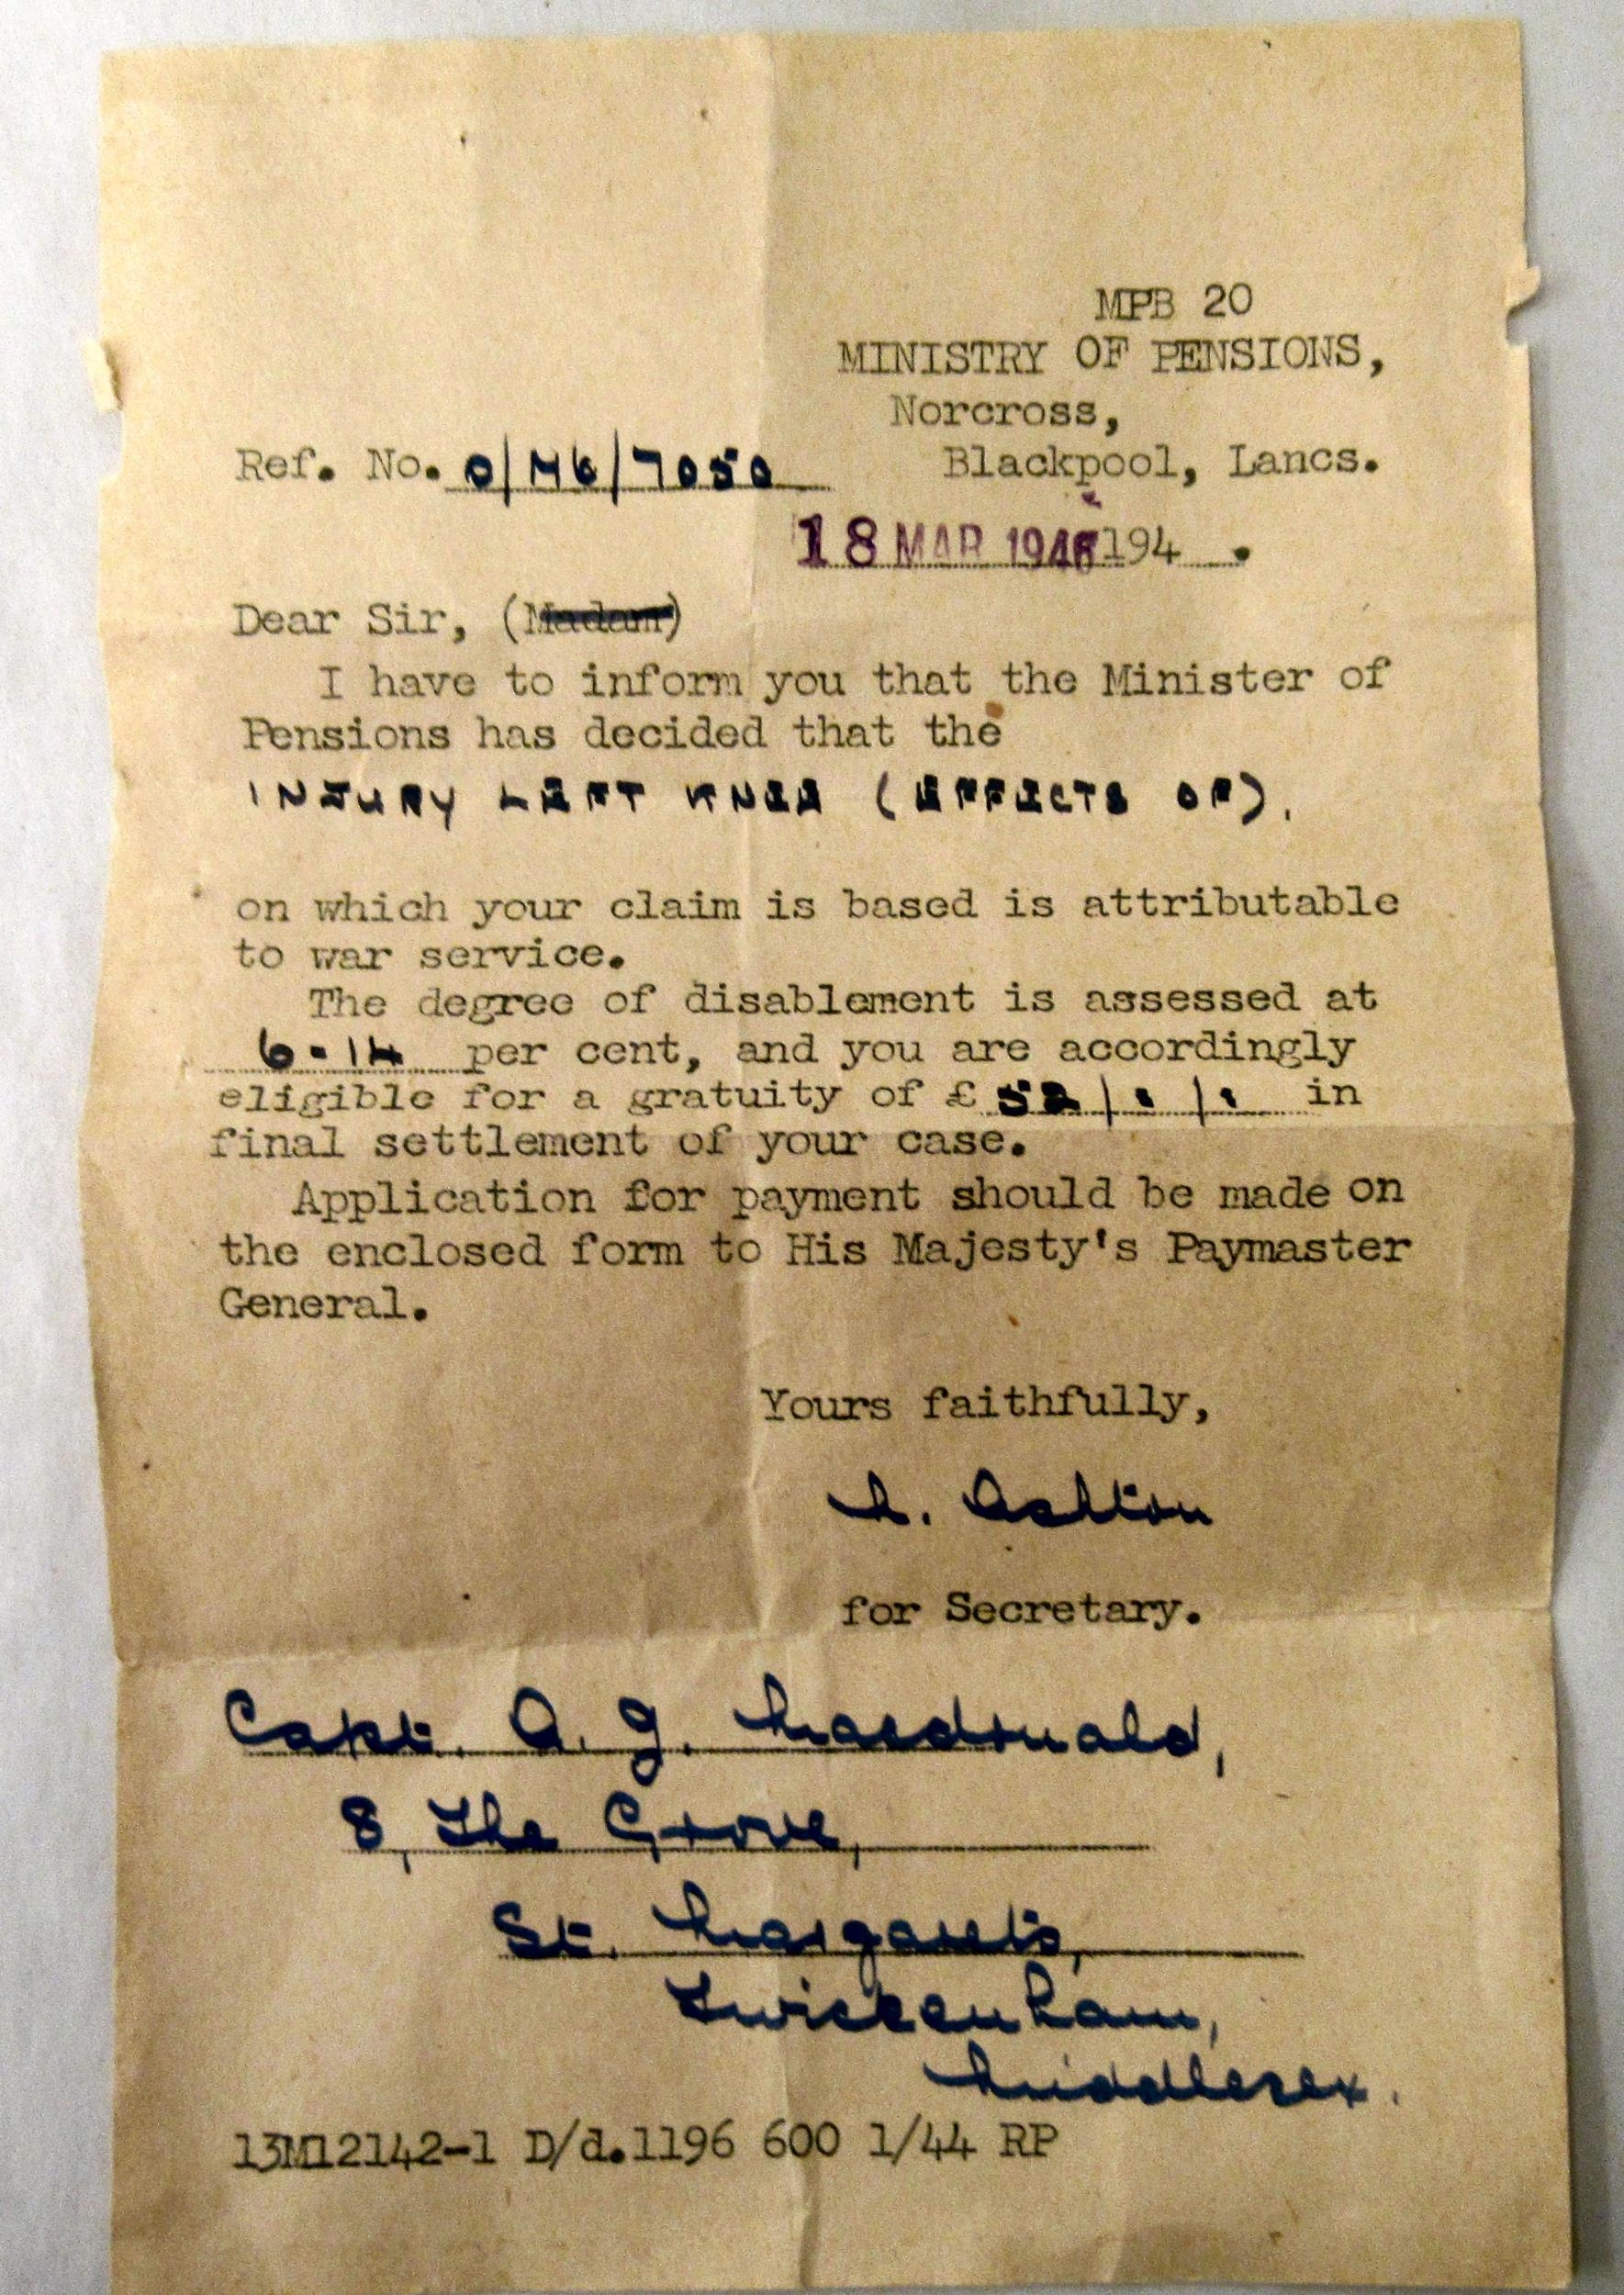 MPB 20
MINISTRY OF PENSIONS,
Norcross,
Ref. No. O/M6/7050 Blackpool, Lancs.
18 MAR 194 194 .
Dear Sir, (Madam)
I have to inform you that the Minister of
Pensions has decided that the
INJURY LEFT KNEE (EFFECTS OF).
on which your claim is based is attributable
to war service.
The degree of disablement is assessed at
6-14 per cent, and you are accordingly
eligible for a gratuity of £ 52/./. in
final settlement of your case.
Application for payment should be made on
the enclosed form to His Majesty's Paymaster
General.
Yours faithfully,
Ashton
for Secretary.
Capt. A. G. Macdonald,
8, The Grove,
St. Margaret's,
Twickenham,
Middlesex.
13M12142-1 D/d.1196 600 1/44 RP